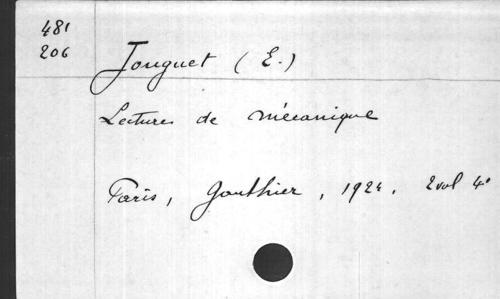 481
206
Jouguet (E.)
Lectures de mécanique
Paris, Gauthier, 1924. 2 vol 4°